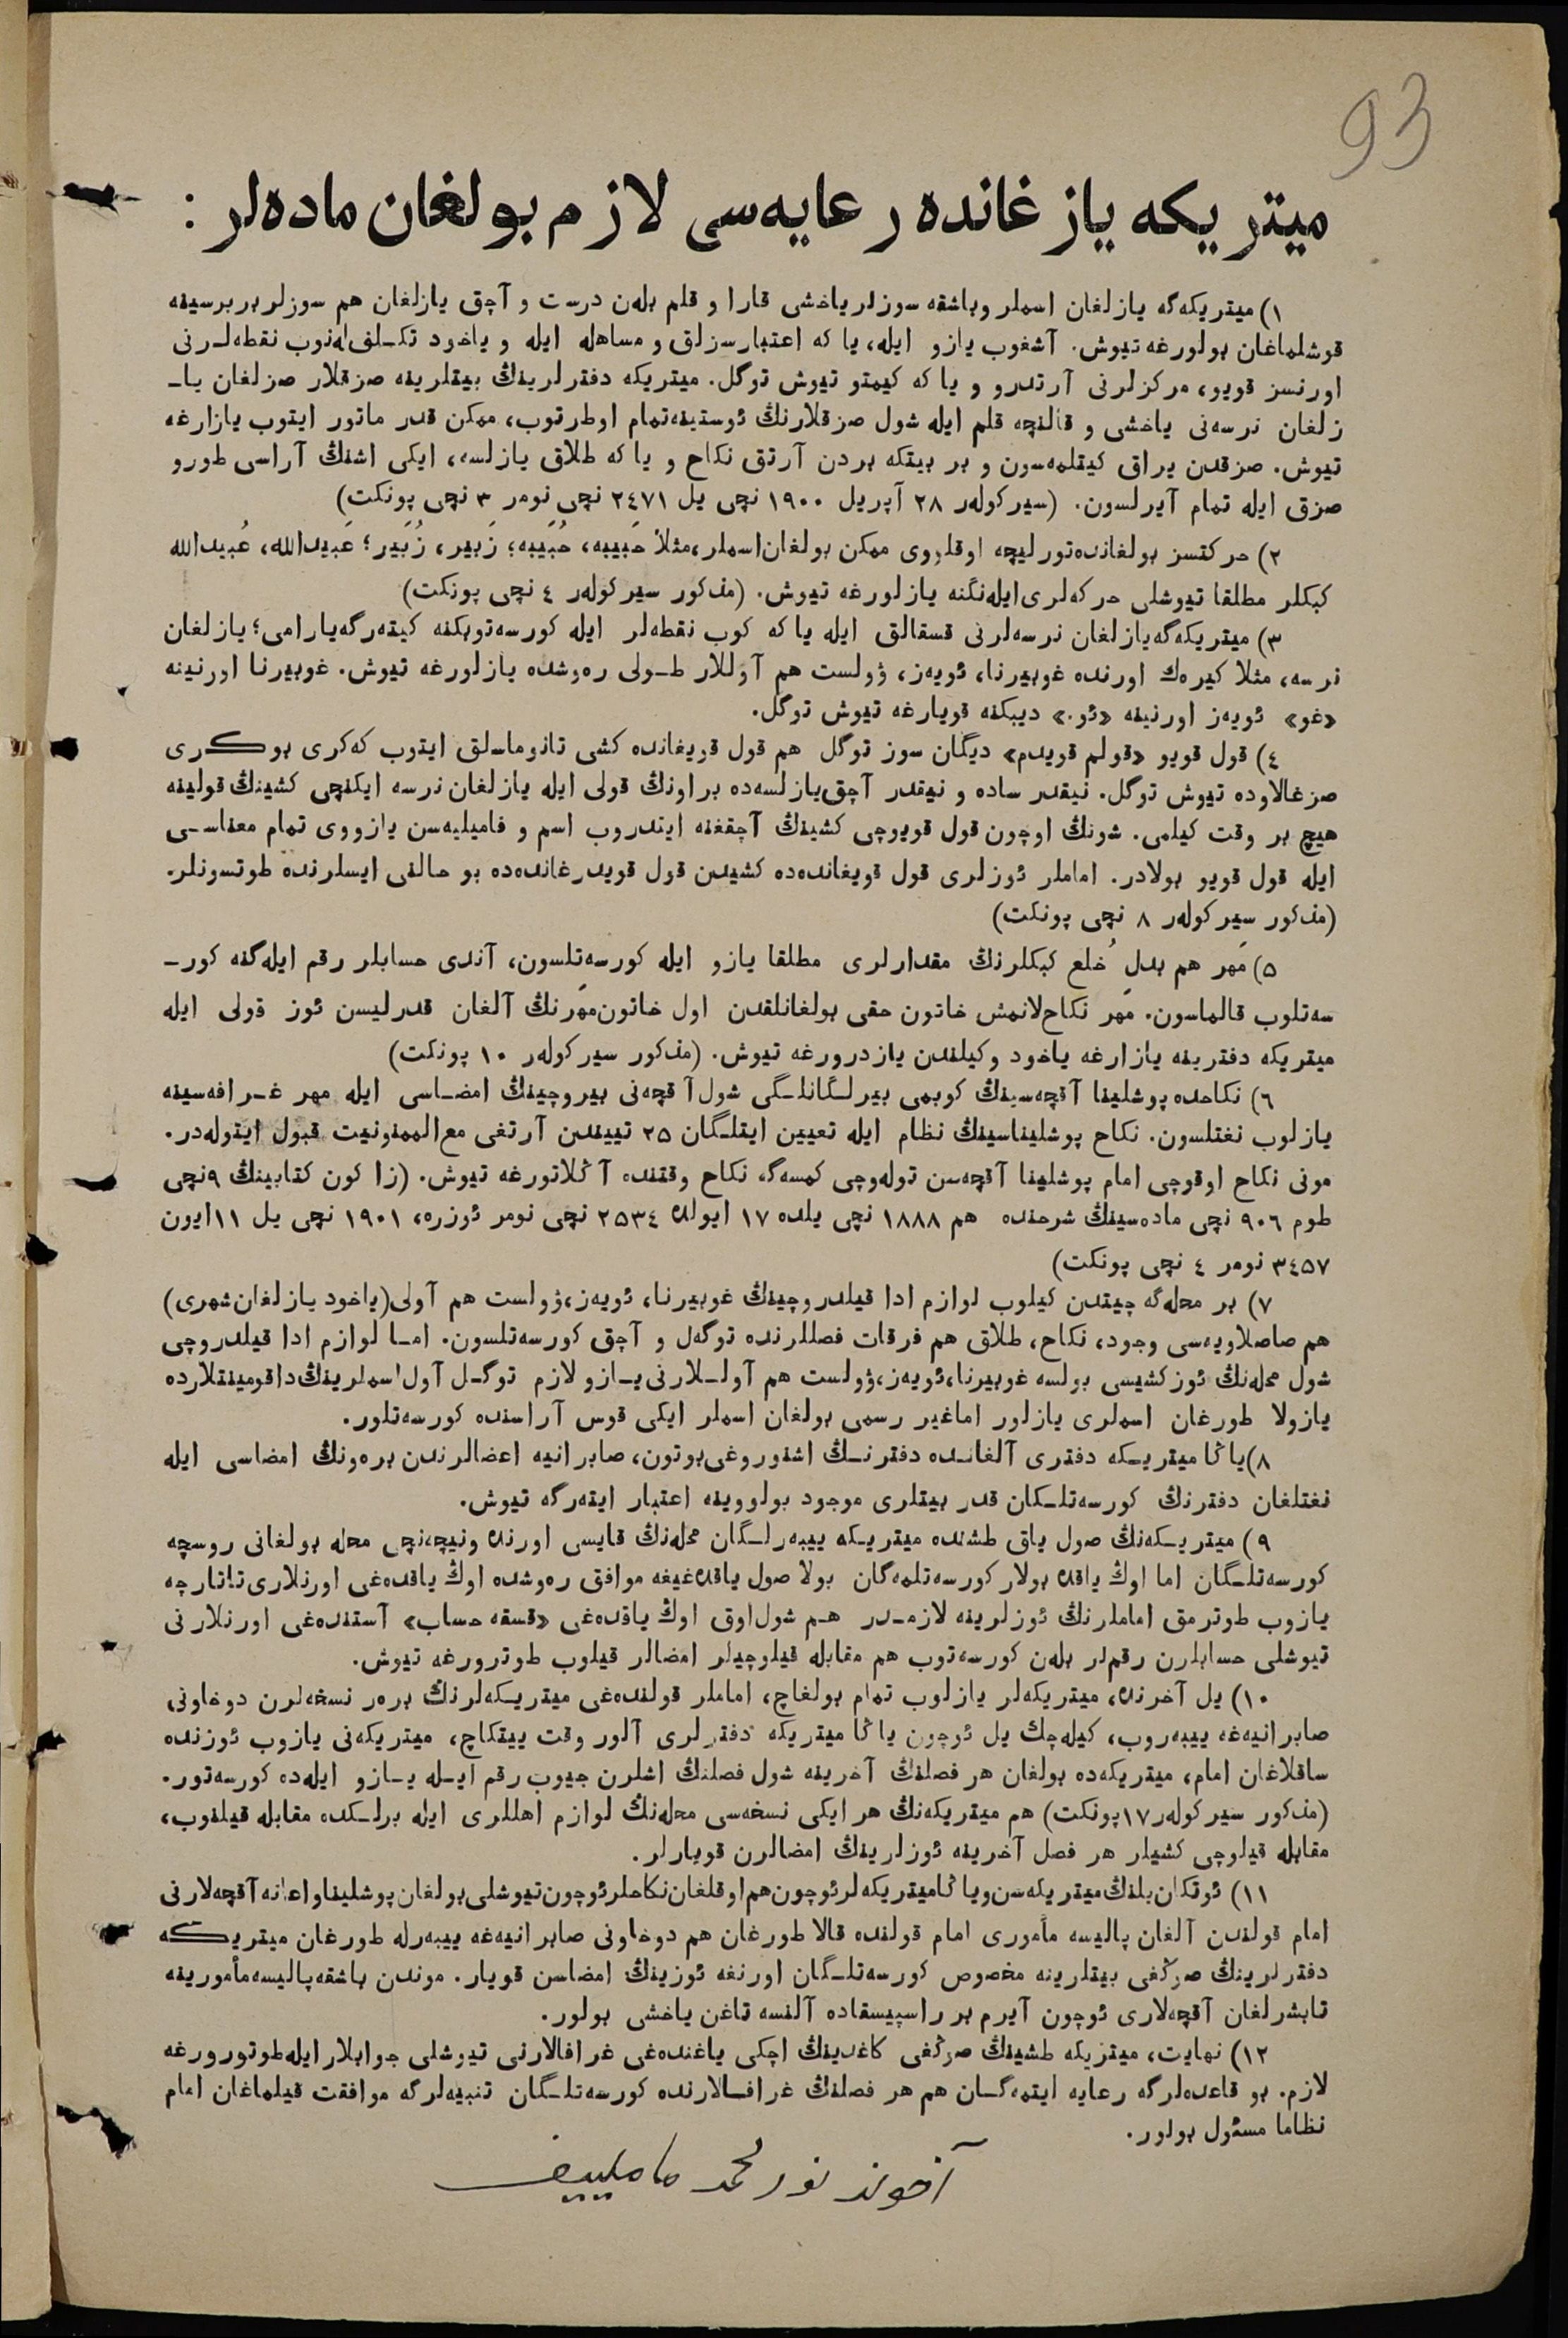 93
میتریکه یازغانده رعایه‌سی لازم بولغان ماده‌لر :
١) میتریکه‌گه یازلغان اسملر وباشقه سوزلر یاخشی قارا و قلم بلەن درست و آچق یازلغان هم سوزلر بربرسینه
قوشلماغان بولورغه تیوش. آشغوب یازو ایله، یا که اعتبارسزلق و مساهله ایله و یاخود تکـلف‌له‌نوب نقطه‌لـرنی
اورنسز قویو، مرکزلرنی آرتدرو و یا که کیمتو تیوش توگل. میتریکه دفترلرینڭ بیتلرینه صزقلار صزلغان یاـ
زلغان نرسه‌نی یاخشی و قالنچه قلم ایله شول صزقلارنڭ ئوستینه‌تمام اوطرتوب، ممکن قدر ماتور ایتوب یازارغه
تیوش. صزقدن یراق کیتلمه‌سون و بر بیتکه بردن آرتق نکاح و یا که طلاق یازلسه، ایکی اشنڭ آراسی طورو
صزق ایله تمام آیرلسون. (سیرکولەر ٢٨ آپریل ١٩٠٠ نچی یل ٢٤٧١ نچی نومر ٣ نچی پونکت)
٢) حرکتسز بولغانده‌تورلیچه اوقلووی ممکن بولغان‌اسملر،مثلاً حَبیبه، حُبَیبه؛ زَبیر، زُبَیر؛ عَبیدالله، عُبیدالله
کبکلر مطلقا تیوشلی حرکه‌لری‌ایله‌نگنه یازلورغه تیوش. (مذکور سیرکولەر ٤ نچی پونکت)
٣) میتریکه‌گه‌یازلغان نرسه‌لرنی قسقالق ایله یا که کوب نقطه‌لر ایله کورسه‌توبکنه کیته‌رگه‌یارامی؛ یازلغان
نرسه، مثلا کیره‌ك اورنده غوبیرنا، ئویه‌ز، ۋولست هم آوللار طـولی ره‌وشده یازلورغه تیوش. غوبیرنا اورنینه
«غو» ئویه‌ز اورنینه «ئو.» دیبکنه قویارغه تیوش توگل.
٤) قول قویو «قولم قویدم» دیگان سوز توگل هم قول قویغانده کشی تانوماسلق ایتوب که‌کری بوکری
صزغالاوده تیوش توگل. نیقدر ساده و نیقدر آچق‌یازلسه‌ده براونڭ قولی ایله یازلغان نرسه ایکنچی کشینڭ قولینه
هیچ بر وقت کیلمی. شونڭ اوچون قول قویوچی کشینڭ آچقغنه ایتدروب اسم و فامیلیه‌سن یازووی تمام معناسـی
ایله قول قویو بولادر. اماملر ئوزلری قول قویغانده‌ده کشیدن قول قویدرغانده‌ده بو حالنی ایسلرنده طوتسونلر.
(مذکور سیرکولەر ٨ نچی پونکت)
٥) مَهر هم بدلِ خُلع کبکلرنڭ مقدارلری مطلقا یازو ایله کورسه‌تلسون، آندی حسابلر رقم ایله‌گنه کورـ
سه‌تلوب قالماسون. مَهر نکاح‌لانمش خاتون حقی بولغانلقدن اول خاتون‌مَهرنڭ آلغان قدرلیسن ئوز قولی ایله
میتریکه دفترینه یازارغه یاخود وکیلندن یازدرورغه تیوش. (مذکور سیرکولەر ١٠ پونکت)
٦) نکاحده پوشلینا آقچه‌سینڭ کوبمی بیرلـگانلـگی شول آقچه‌نی بیروچینڭ امضـاسی ایله مهر غـرافه‌سینه
یازلوب نغتلسون. نکاح پوشلیناسینڭ نظام ایله تعیین ایتلـگان ٢٥ تییندن آرتغی مع‌الممنونیت قبول ایتوله‌در.
مونی نکاح اوقوچی امام پوشلینا آقچه‌سن توله‌وچی کمسه‌گه نکاح وقتنده آڭلاتورغه تیوش. (زاکون کتابینڭ ٩نچی
طوم ٩٠٦ نچی ماده‌سینڭ شرحنده هم ١٨٨٨ نچی یلده ١٧ ایولده ٢٥٣٤ نچی نومر ئوزره، ١٩٠١ نچی یل ١١ایون
٣٤٥٧ نومر ٤ نچی پونکت)
٧) بر محله‌گه چیتدن کیلوب لوازم ادا قیلدروچینڭ غوبیرنا، ئویه‌ز،ۋولست هم آولی(یاخود یازلغان‌شهری)
هم صاصلاویه‌سی وجود، نکاح، طلاق هم فرقات فصللرنده توگه‌ل و آچق کورسه‌تلسون. امـا لوازم ادا قیلدروچی
شول محله‌نڭ ئوزکشیسی بولسه غوبیرنا،ئویه‌ز،ۋولست هم آولـلارنی یـازو لازم توگـل آول‌اسملرینڭ‌داقومینتلارده
یازولا طورغان اسملری یازلور اماغیر رسمی بولغان اسملر ایکی قوس آراسنده کورسه‌تلور.
٨)یاڭا میتریـکه دفتری آلغانـده دفترنـڭ اشنوروغی‌بوتون، صابرانیه اعضالرندن بره‌ونڭ امضاسی ایله
نغتلغان دفترنڭ کورسه‌تلـکان قدر بیتلری موجود بولووینه اعتبار ایته‌رگه تیوش.
٩) میتریـکه‌نڭ صول یاق طشنده میتریـکه ییبه‌رلـگان محله‌نڭ قایسی اورنده ونیچه‌نچی محله بولغانی روسچه
کورسه‌تلـگان اما اوڭ یاقده بولار کورسه‌تلمه‌گان بولا صول یاقده‌غیغه موافق ره‌وشده اوڭ یاقده‌غی اورنلاری‌تاتارچه
یازوب طوترمق اماملرنڭ ئوزلرینه لازمـدر هـم شول‌اوق اوڭ یاقده‌غی «قسقه حساب» آستنده‌غی اورنلارنی
تیوشلی حسابلرن رقم‌لر بلەن کورسه‌توب هم مقابله قیلوچیلر امضالر قیلوب طوترورغه تیوش.
١٠) یل آخرنده، میتریکه‌لر یازلوب تمام بولغاچ، اماملر قولنده‌غی میتریـکه‌لرنڭ بره‌ر نسخه‌لرن دوخاونی
صابرانیه‌غه ییبه‌روب، کیله‌چك یل ئوچون یاڭا میتریکه دفترلری آلور وقت ییتکاچ، میتریکه‌نی یازوب ئوزنده
ساقلاغان امام، میتریکه‌ده بولغان هر فصلنڭ آخرینه شول فصلنڭ اشلرن جیوب رقم ایـله یـازو ایله‌ده کورسه‌تور.
(مذکور سیرکولەر١٧پونکت) هم میتریکه‌نڭ هر ایکی نسخه‌سی محله‌نڭ لوازم اهللری ایله برلـکده مقابله قیلنوب،
مقابله قیلوچی کشیلر هر فصل آخرینه ئوزلرینڭ امضالرن قویارلر.
١١) ئوتکان‌یلنڭ‌میتریکه‌سن‌ویاڭامیتریکه‌لرئوچون‌هم‌اوقلغان‌نکاحلرئوچون‌تیوشلی‌بولغان‌پوشلیناواعانه‌آقچه‌لارنی
امام قولندن آلغان پالیسه مأموری امام قولنده قالا طورغان هم دوخاونی صابرانیه‌غه ییبه‌رله طورغان میتریکه
دفترلرینڭ صوڭغی بیتلرینه مخصوص کورسه‌تلـگان اورنغه ئوزینڭ امضاسن قویار. موندن باشقه‌پالیسه‌مأمورینه
تابشرلغان آقچه‌لاری ئوچون آیرم بر راسپیسقاده آلنسه تاغن یاخشی بولور.
١٢) نهایت، میتریکه طشینڭ صوڭغی کاغدینڭ اچکی یاغنده‌غی غرافالارنی تیوشلی جوابلار ایله‌طوتورورغه
لازم. بو قاعده‌لرگه رعایه ایتمه‌گـان هم هر فصلنڭ غرافـالارنده کورسه‌تلـگان تنبیه‌لرگه موافقت قیلماغان امام
نظاما مسئول بولور.
آخوند نورمحمد مامیلییف